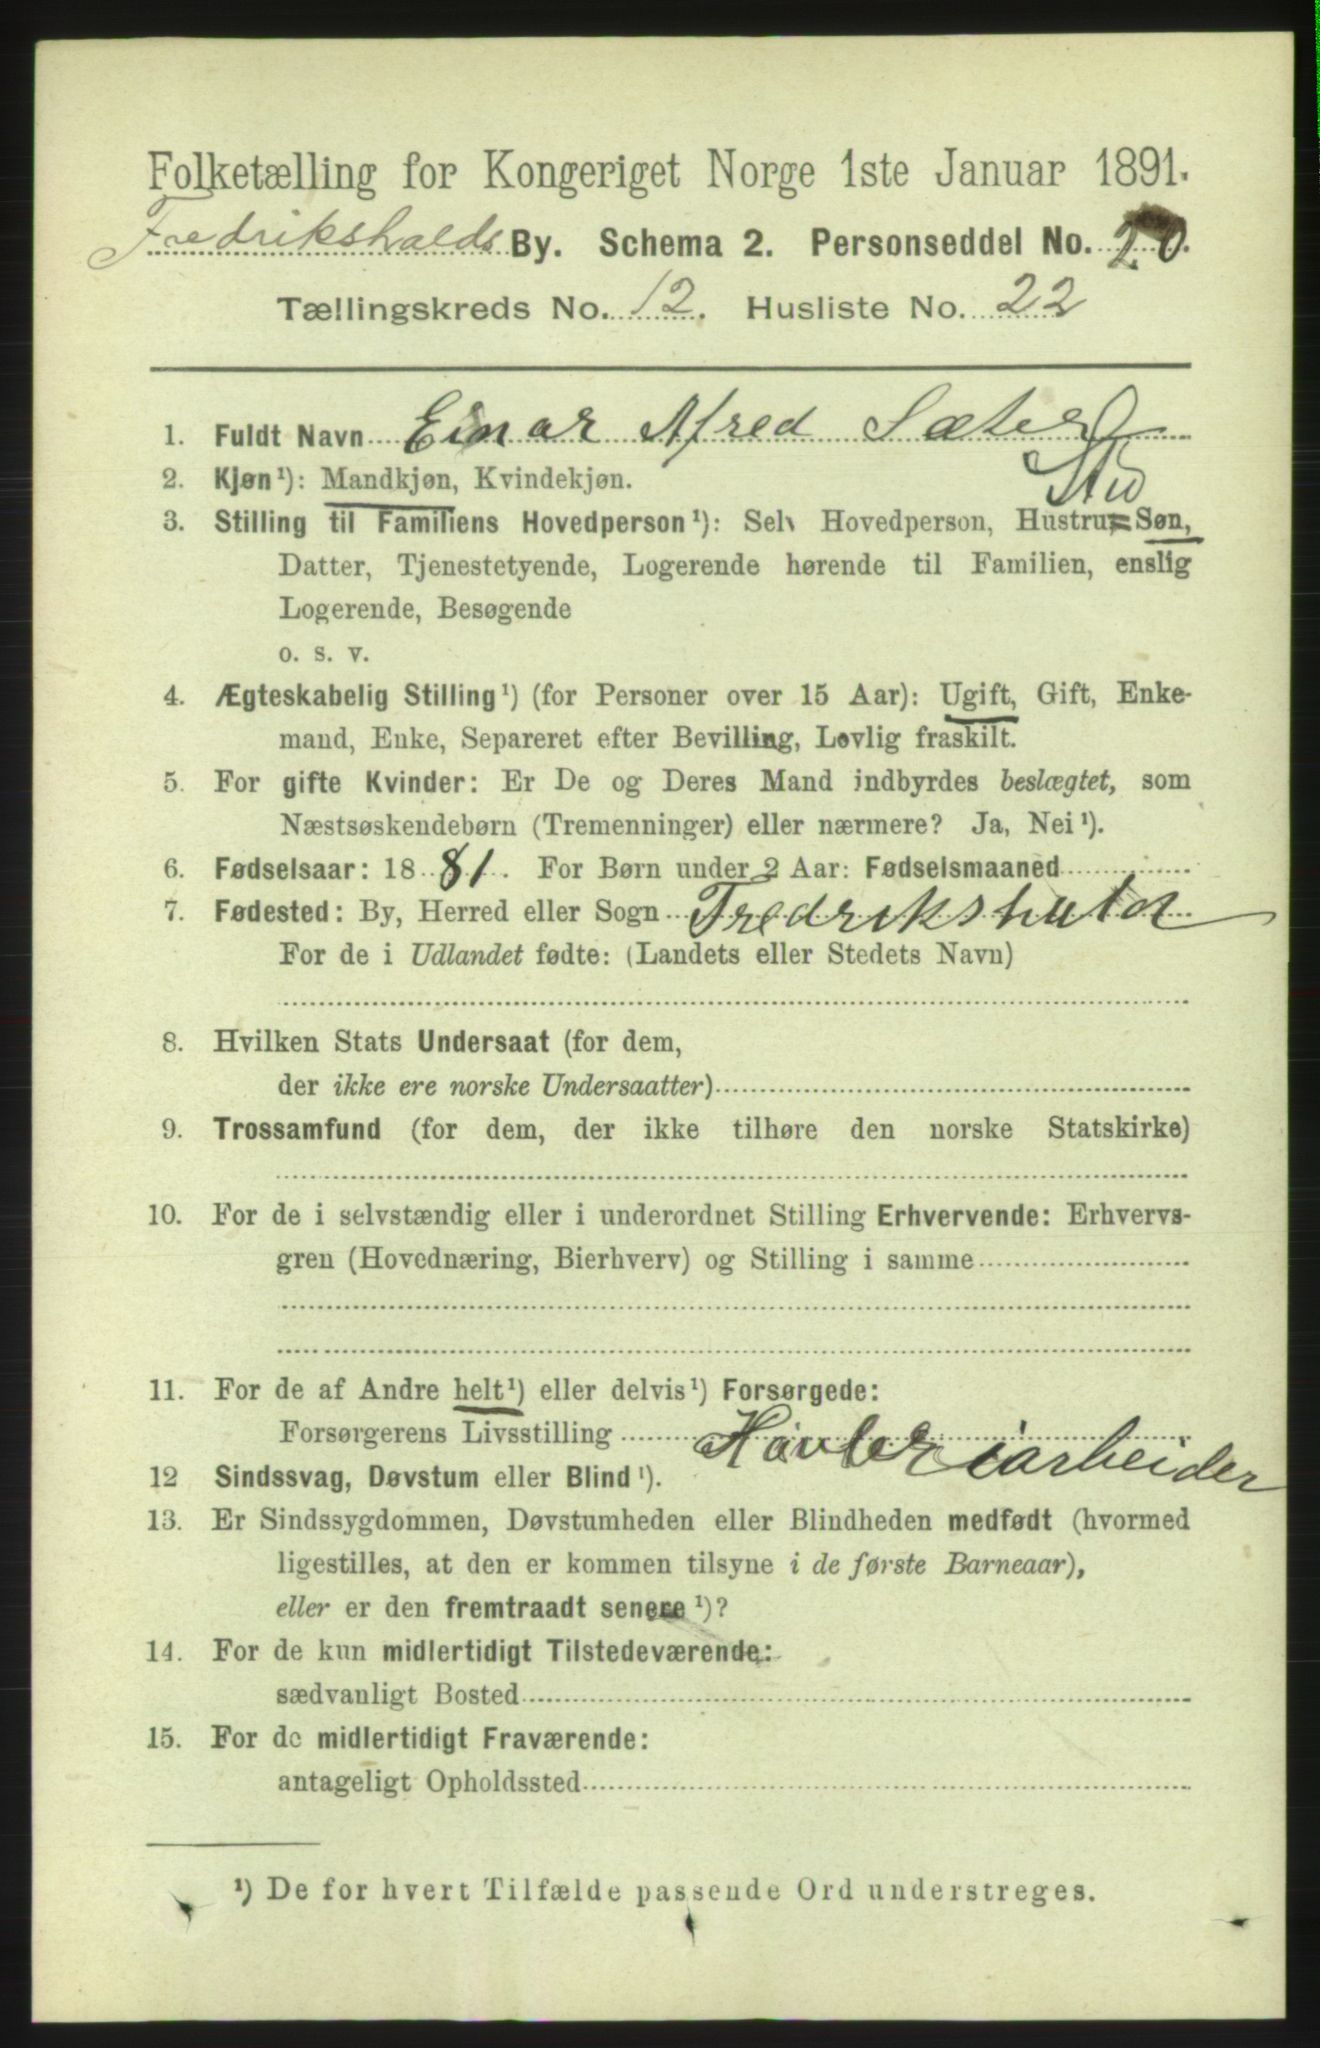 Folketælling for Kongeriget Norge 1ste Januar 1891.
Fredrikshalds By. Schema 2. Personseddel No. 20.
Tællingskreds No. 12. Husliste No. 22
1. Fuldt Navn Einar Afred Sæter
2. Kjøn¹): Mandkjøn, Kvindekjøn.
3. Stilling til Familiens Hovedperson¹): Selv Hovedperson, Hustru, Søn,
Datter, Tjenestetyende, Logerende hørende til Familien, enslig
Logerende, Besøgende
o. s. v.
4. Ægteskabelig Stilling¹) (for Personer over 15 Aar): Ugift, Gift, Enke-
mand, Enke, Separeret efter Bevilling, Lovlig fraskilt.
5. For gifte Kvinder: Er De og Deres Mand indbyrdes beslægtet, som
Næstsøskendebørn (Tremenninger) eller nærmere? Ja, Nei¹).
6. Fødselsaar: 1881. For Børn under 2 Aar: Fødselsmaaned
7. Fødested: By, Herred eller Sogn Fredrikshald
For de i Udlandet fødte: (Landets eller Stedets Navn)
8. Hvilken Stats Undersaat (for dem,
der ikke ere norske Undersaatter)
9. Trossamfund (for dem, der ikke tilhøre den norske Statskirke)
10. For de i selvstændig eller i underordnet Stilling Erhvervende: Erhvervs-
gren (Hovednæring, Bierhverv) og Stilling i samme
11. For de af Andre helt¹) eller delvis¹) Forsørgede:
Forsørgerens Livsstilling Høvleriarbeider
12 Sindssvag, Døvstum eller Blind¹).
13. Er Sindssygdommen, Døvstumheden eller Blindheden medfødt (hvormed
ligestilles, at den er kommen tilsyne i de første Barneaar),
eller er den fremtraadt senere¹)?
14. For de kun midlertidigt Tilstedeværende:
sædvanligt Bosted
15. For de midlertidigt Fraværende:
antageligt Opholdssted
¹) De for hvert Tilfælde passende Ord understreges.